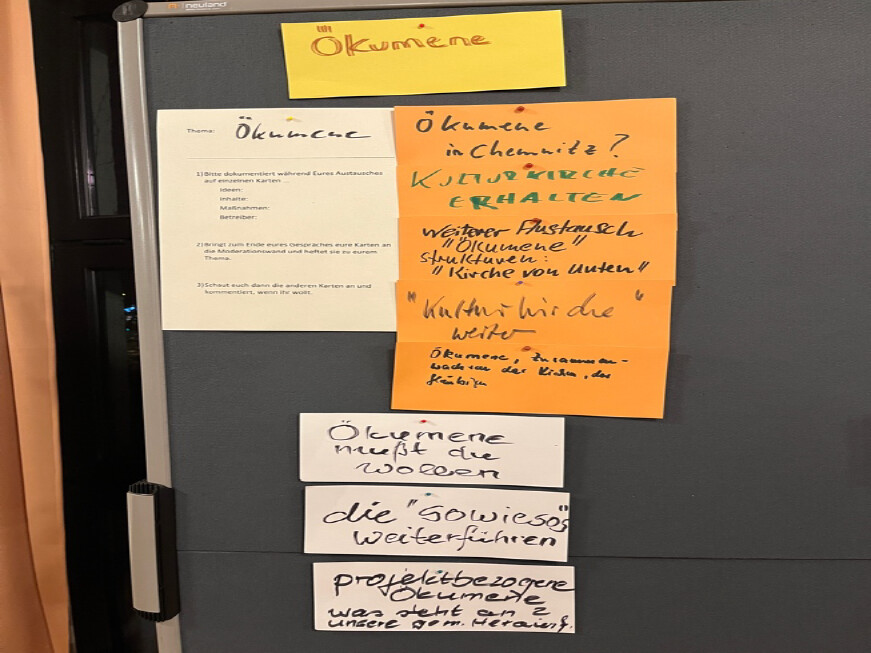 neuland
Ökumene
Thema: Ökumene
1) Bitte dokumentiert während Eures Austausches
auf einzelnen Karten ...
Ideen:
Inhalte:
Maßnahmen:
Betreiber:
2) Bringt zum Ende eures Gespräches eure Karten an
die Moderationswand und heftet sie zu eurem
Thema.
3) Schaut euch dann die anderen Karten an und
kommentiert, wenn ihr wollt.
Ökumene
in Chemnitz?
KULTURKIRCHE
ERHALTEN
weiterer Austausch
"Ökumene"
strukturen:
"Kirche von Unten"
"Kulturkirche"
weiter
Ökumene, Zusammen-
wachsen der Kirchen, der
Gläubigen
Ökumene
mußt du
wollen
die "Sowiesos"
weiterführen
projektbezogene
Ökumene
was steht an?
unsere gem.